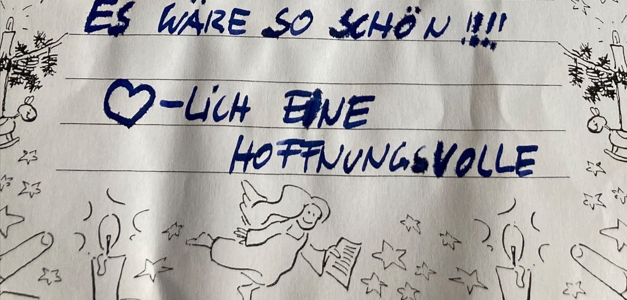 ES WÄRE SO SCHÖN !!!!
♡-LICH EINE
HOFFNUNGSVOLLE